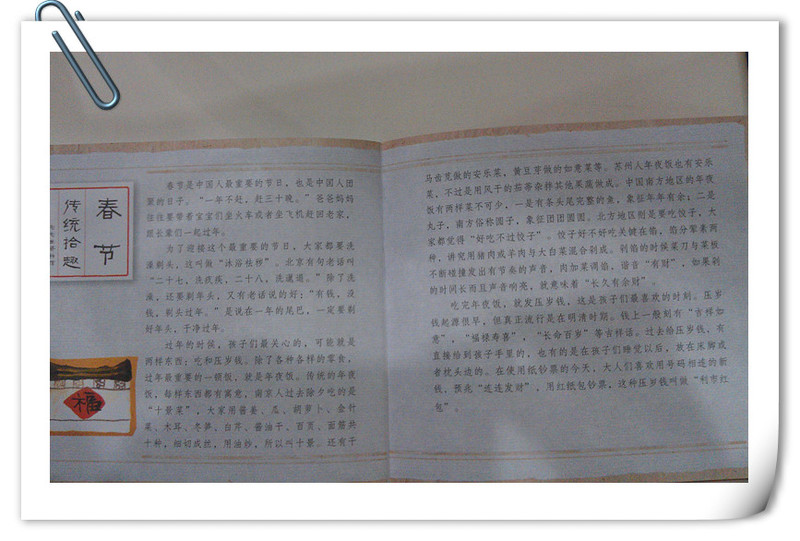 春节
传统拾趣
春节是中国人最重要的节日，也是中国人团
聚的日子。“一年不赶，赶三十晚。”爸爸妈妈
往往要带着宝宝们坐火车或者坐飞机赶回老家，
跟长辈们一起过年。
为了迎接这个最重要的节日，大家都要洗
澡剃头，这叫做“沐浴桂桥”。北京有句老话叫
“二十七，洗疚疾，二十八，洗邋遢。”除了洗
澡，还要剃年头，又有老话说的好：“有钱，没
钱，剃头过年。”是说在一年的尾巴，一定要剃
好年头，干净过年。
过年的时候，孩子们最关心的，可能就是
两样东西：吃和压岁钱。除了各种各样的零食，
过年最重要的一顿饭，就是年夜饭。传统的年夜
饭，每样东西都有寓意，南京人过去除夕吃的是
“十景菜”，大家用酱姜、瓜、胡萝卜、金针
菜、木耳、冬笋、白芹、酱油干、百页、面筋共
十种，细切成丝，用油炒，所以叫十景。还有于
马齿苋做的安乐菜，黄豆芽做的如意菜等。苏州人年夜饭也有安乐
菜，不过是用风干的茄蒂杂拌其他果蔬做成。中国南方地区的年夜
饭有两样菜不可少，一是有条头尾完整的鱼，象征年年有余；二是
丸子，南方俗称圆子，象征团团圆圆。北方地区则是要吃饺子，大
家都觉得“好吃不过饺子”。饺子好不好吃关键在馅，馅分荤素两
种，讲究用猪肉或羊肉与大白菜混合剁成。剁馅的时候菜刀与菜板
不断碰撞发出有节奏的声音，肉加菜调馅，谐音“有财”，如果剁
的时间长而且声音响亮，就意味着“长久有余财”。
吃完年夜饭，就发压岁钱，这是孩子们最喜欢的时刻。压岁
钱起源很早，但真正流行是在明清时期。钱上一般刻有“吉祥如
意”，“福禄寿喜”，“长命百岁”等吉祥话。过去给压岁钱，有
直接给到孩子手里的，也有的是在孩子们睡觉以后，放在床脚或
者枕头边的。在使用纸钞票的今天，大人们喜欢用号码相连的新
钱，预兆“连连发财”，用红纸包钞票，这种压岁钱叫做“利市红
包”。
福